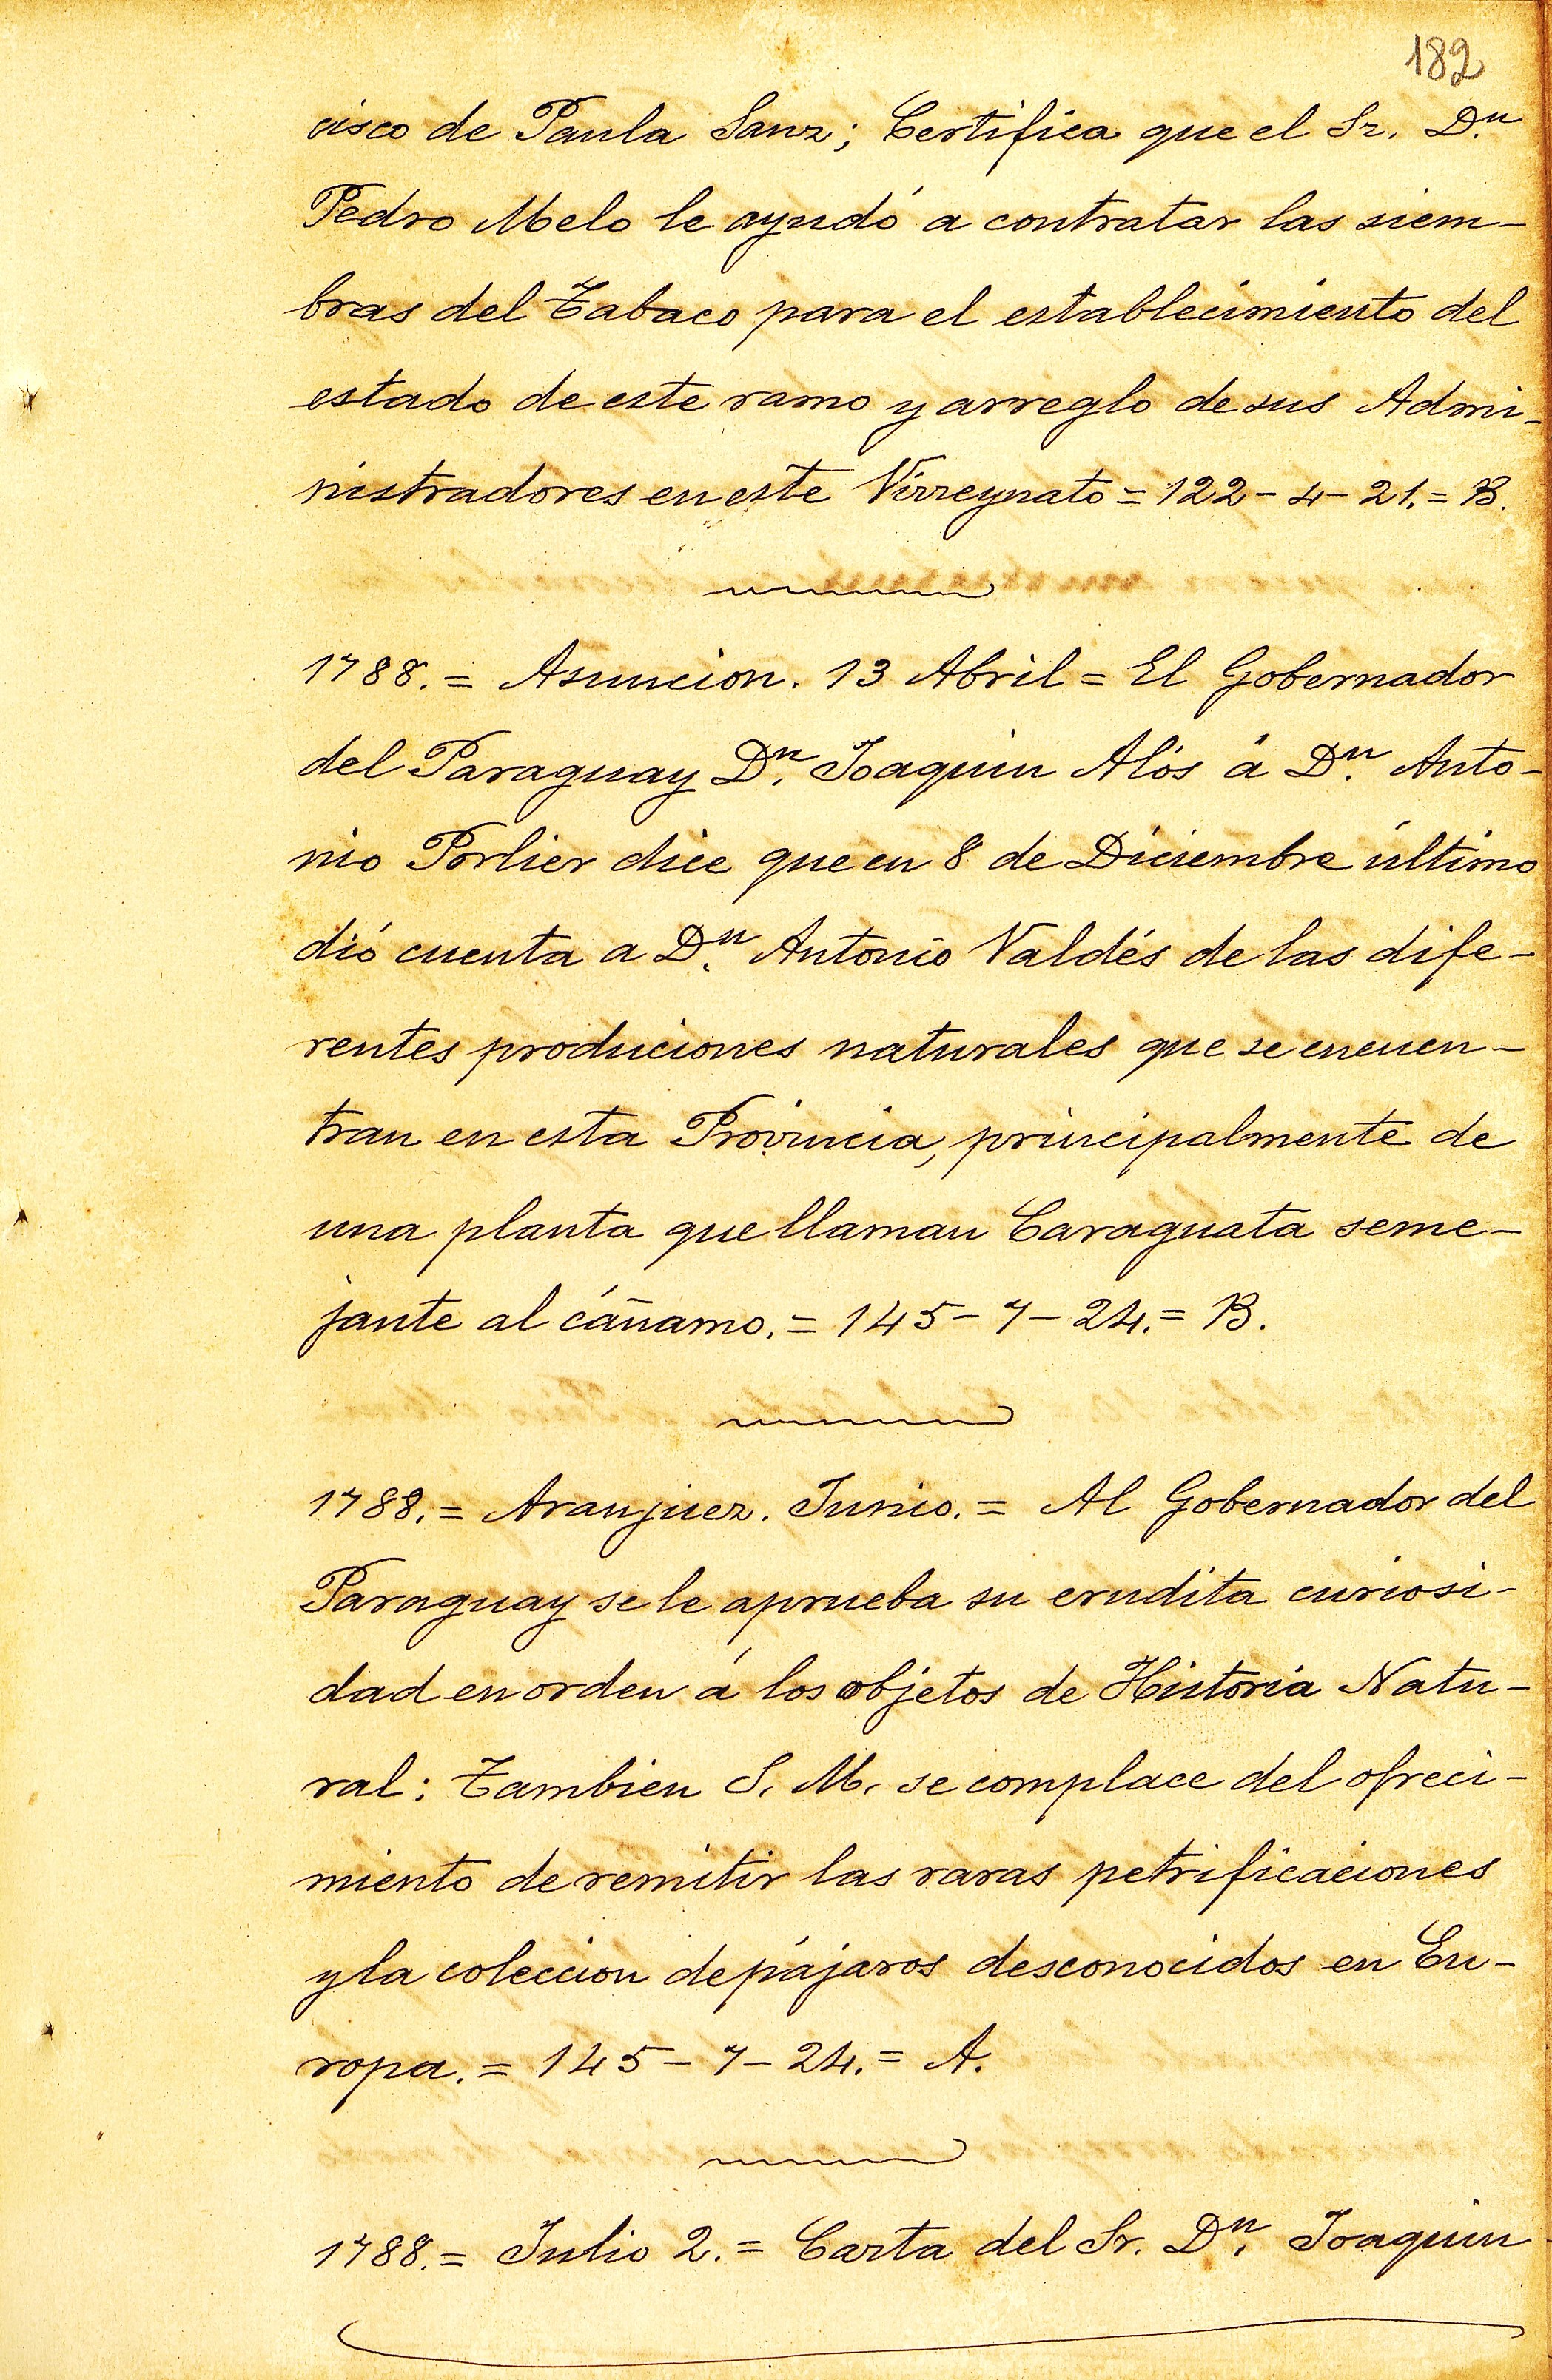 182
cisco de Paula Sanz; Certifica que el Sr. D.n
Pedro Melo le ayudó a contratar las siem-
bras del Tabaco para el establecimiento del
estado de este ramo y arreglo de sus Admi-
nistradores en este Virreynato = 122 - 4 - 21. = B.
1788. = Asuncion. 13 Abril = El Gobernador
del Paraguay D.n Joaquin Alós á D.n Anto-
nio Porlier dice que en 8 de Diciembre último
dió cuenta a D.n Antonio Valdés de las dife-
rentes produciones naturales que se encuen-
tran en esta Provincia, principalmente de
una planta que llaman Caraguata seme-
jante al cáñamo. = 145 - 7 - 24. = B.
1788. = Aranjuez. Junio. = Al Gobernador del
Paraguay se le aprueba su erudita curiosi-
dad en orden á los objetos de Historia Natu-
ral: Tambien S. M. se complace del ofreci-
miento de remitir las raras petrificaciones
y la coleccion de pájaros desconocidos en Eu-
ropa. = 145 - 7 - 24. = A.
1788. = Julio 2. = Carta del Sr. D.n Joaquin